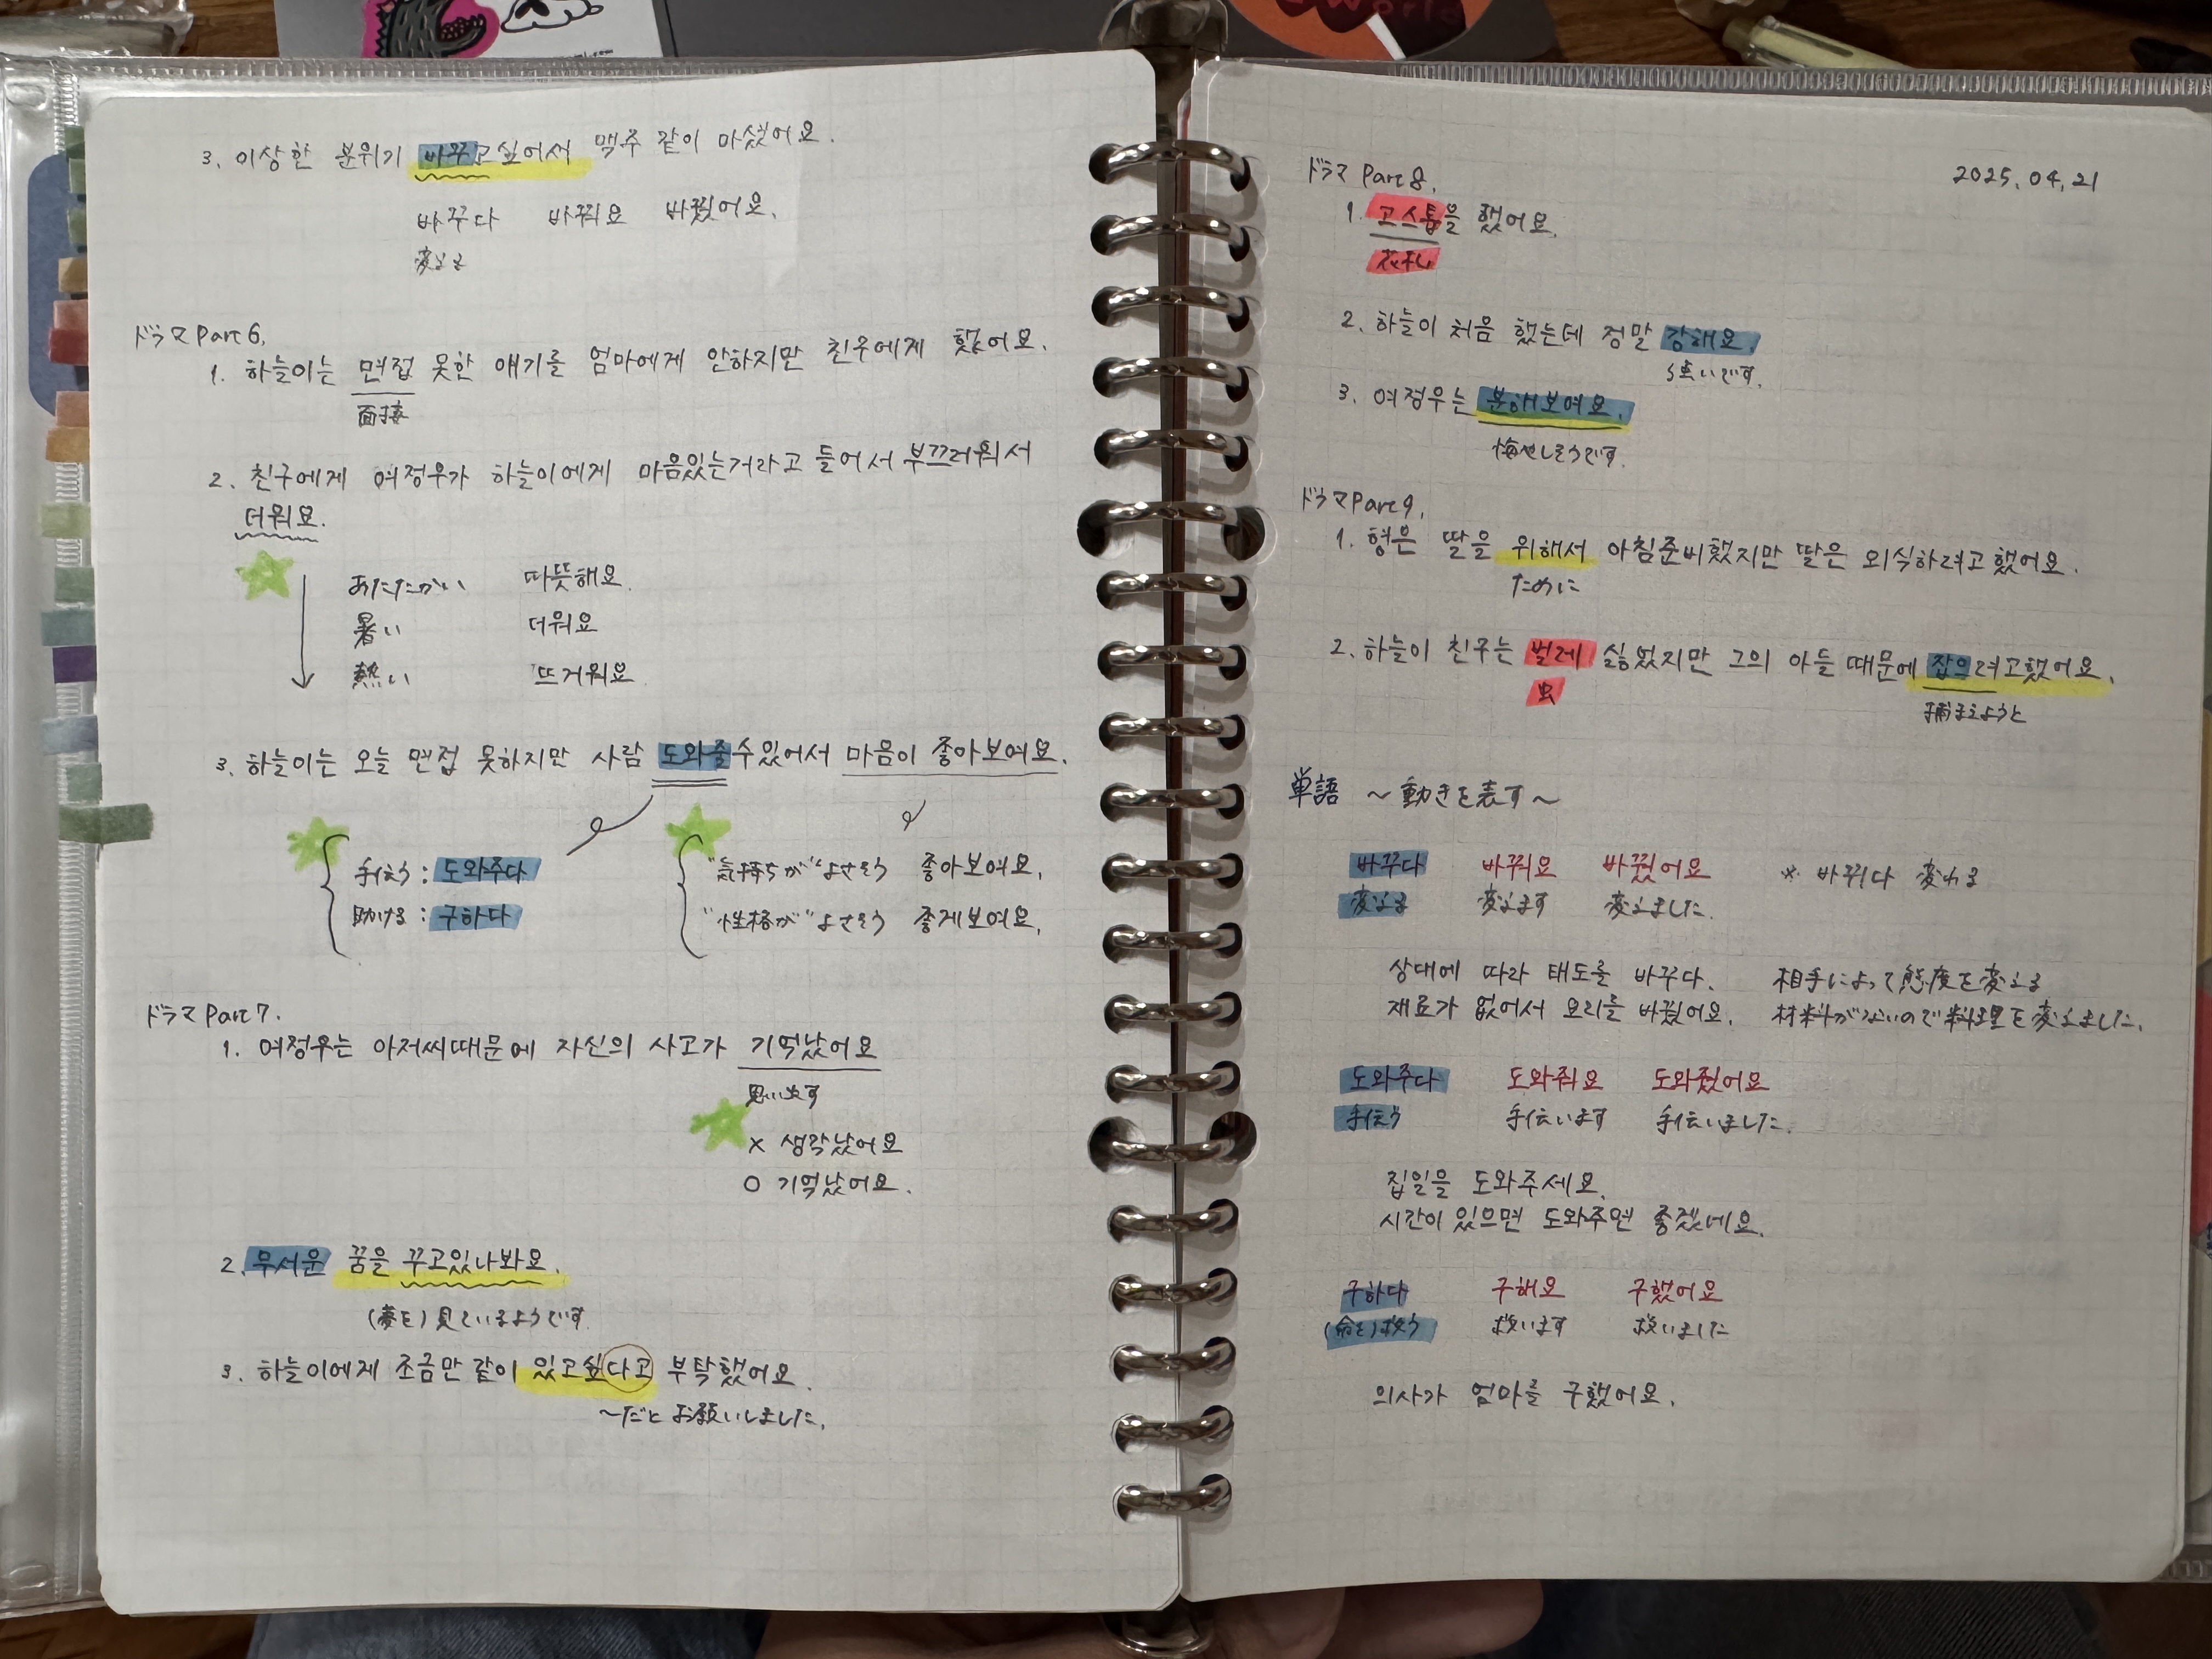 3. 이상한 분위기 바꾸고싶어서 맥주 같이 마셨어요.
바꾸다 바꿔요 바꿨어요.
変える
ドラマ Part 6.
1. 하늘이는 면접 못한 얘기를 엄마에게 안하지만 친구에게 했어요.
面接
2. 친구에게 여정우가 하늘이에게 마음있는거라고 들어서 부끄러워서
더워요.
あたたかい 따뜻해요.
暑い 더워요
熱い 뜨거워요
3. 하늘이는 오늘 면접 못하지만 사람 도와줄수있어서 마음이 좋아보여요.
手伝う : 도와주다
助ける : 구하다
"気持ちが"よさそう 좋아보여요.
"性格が"よさそう 좋게보여요.
ドラマ Part 7.
1. 여정우는 아저씨때문에 자신의 사고가 기억났어요
思い出す
× 생각났어요
○ 기억났어요.
2. 무서운 꿈을 꾸고있나봐요.
(夢を)見ているようです
3. 하늘이에게 조금만 같이 있고싶다고 부탁했어요.
〜だと お願いしました.
2025.04.21
ドラマ Part 8.
1. 고스톱을 했어요.
花札
2. 하늘이 처음 했는데 정말 강해요.
強いです.
3. 여정우는 분해보여요.
悔やしそうです.
ドラマ Part 9.
1. 형은 딸을 위해서 아침준비했지만 딸은 외식하려고했어요.
ために
2. 하늘이 친구는 벌레 싫었지만 그의 아들 때문에 잡으려고했어요.
虫
捕まえようと
単語 〜動きを表す〜
바꾸다 바꿔요 바꿨어요 ※ 바뀌다 変わる
変える 変えます 変えました.
상대에 따라 태도를 바꾸다. 相手によって態度を変える
재료가 없어서 요리를 바꿨어요. 材料がないので料理を変えました.
도와주다 도와줘요 도와줬어요
手伝う 手伝います 手伝いました.
집일을 도와주세요.
시간이 있으면 도와주면 좋겠네요.
구하다 구해요 구했어요
(命を)救う 救います 救いました
의사가 엄마를 구했어요.